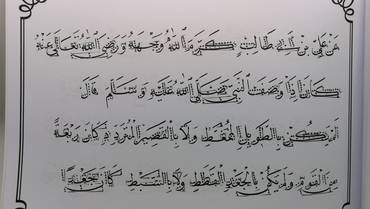 عن علي بن أبي طالب كرم الله وجهه ورضي الله تعالى عنه
كان إذا وصف النبي صلى الله عليه وسلم قال
لم يكن بالطويل الممغط ولا بالقصير المتردد كان ربعة
من القوم ولم يكن بالجعد القطط ولا بالسبط كان جعدا